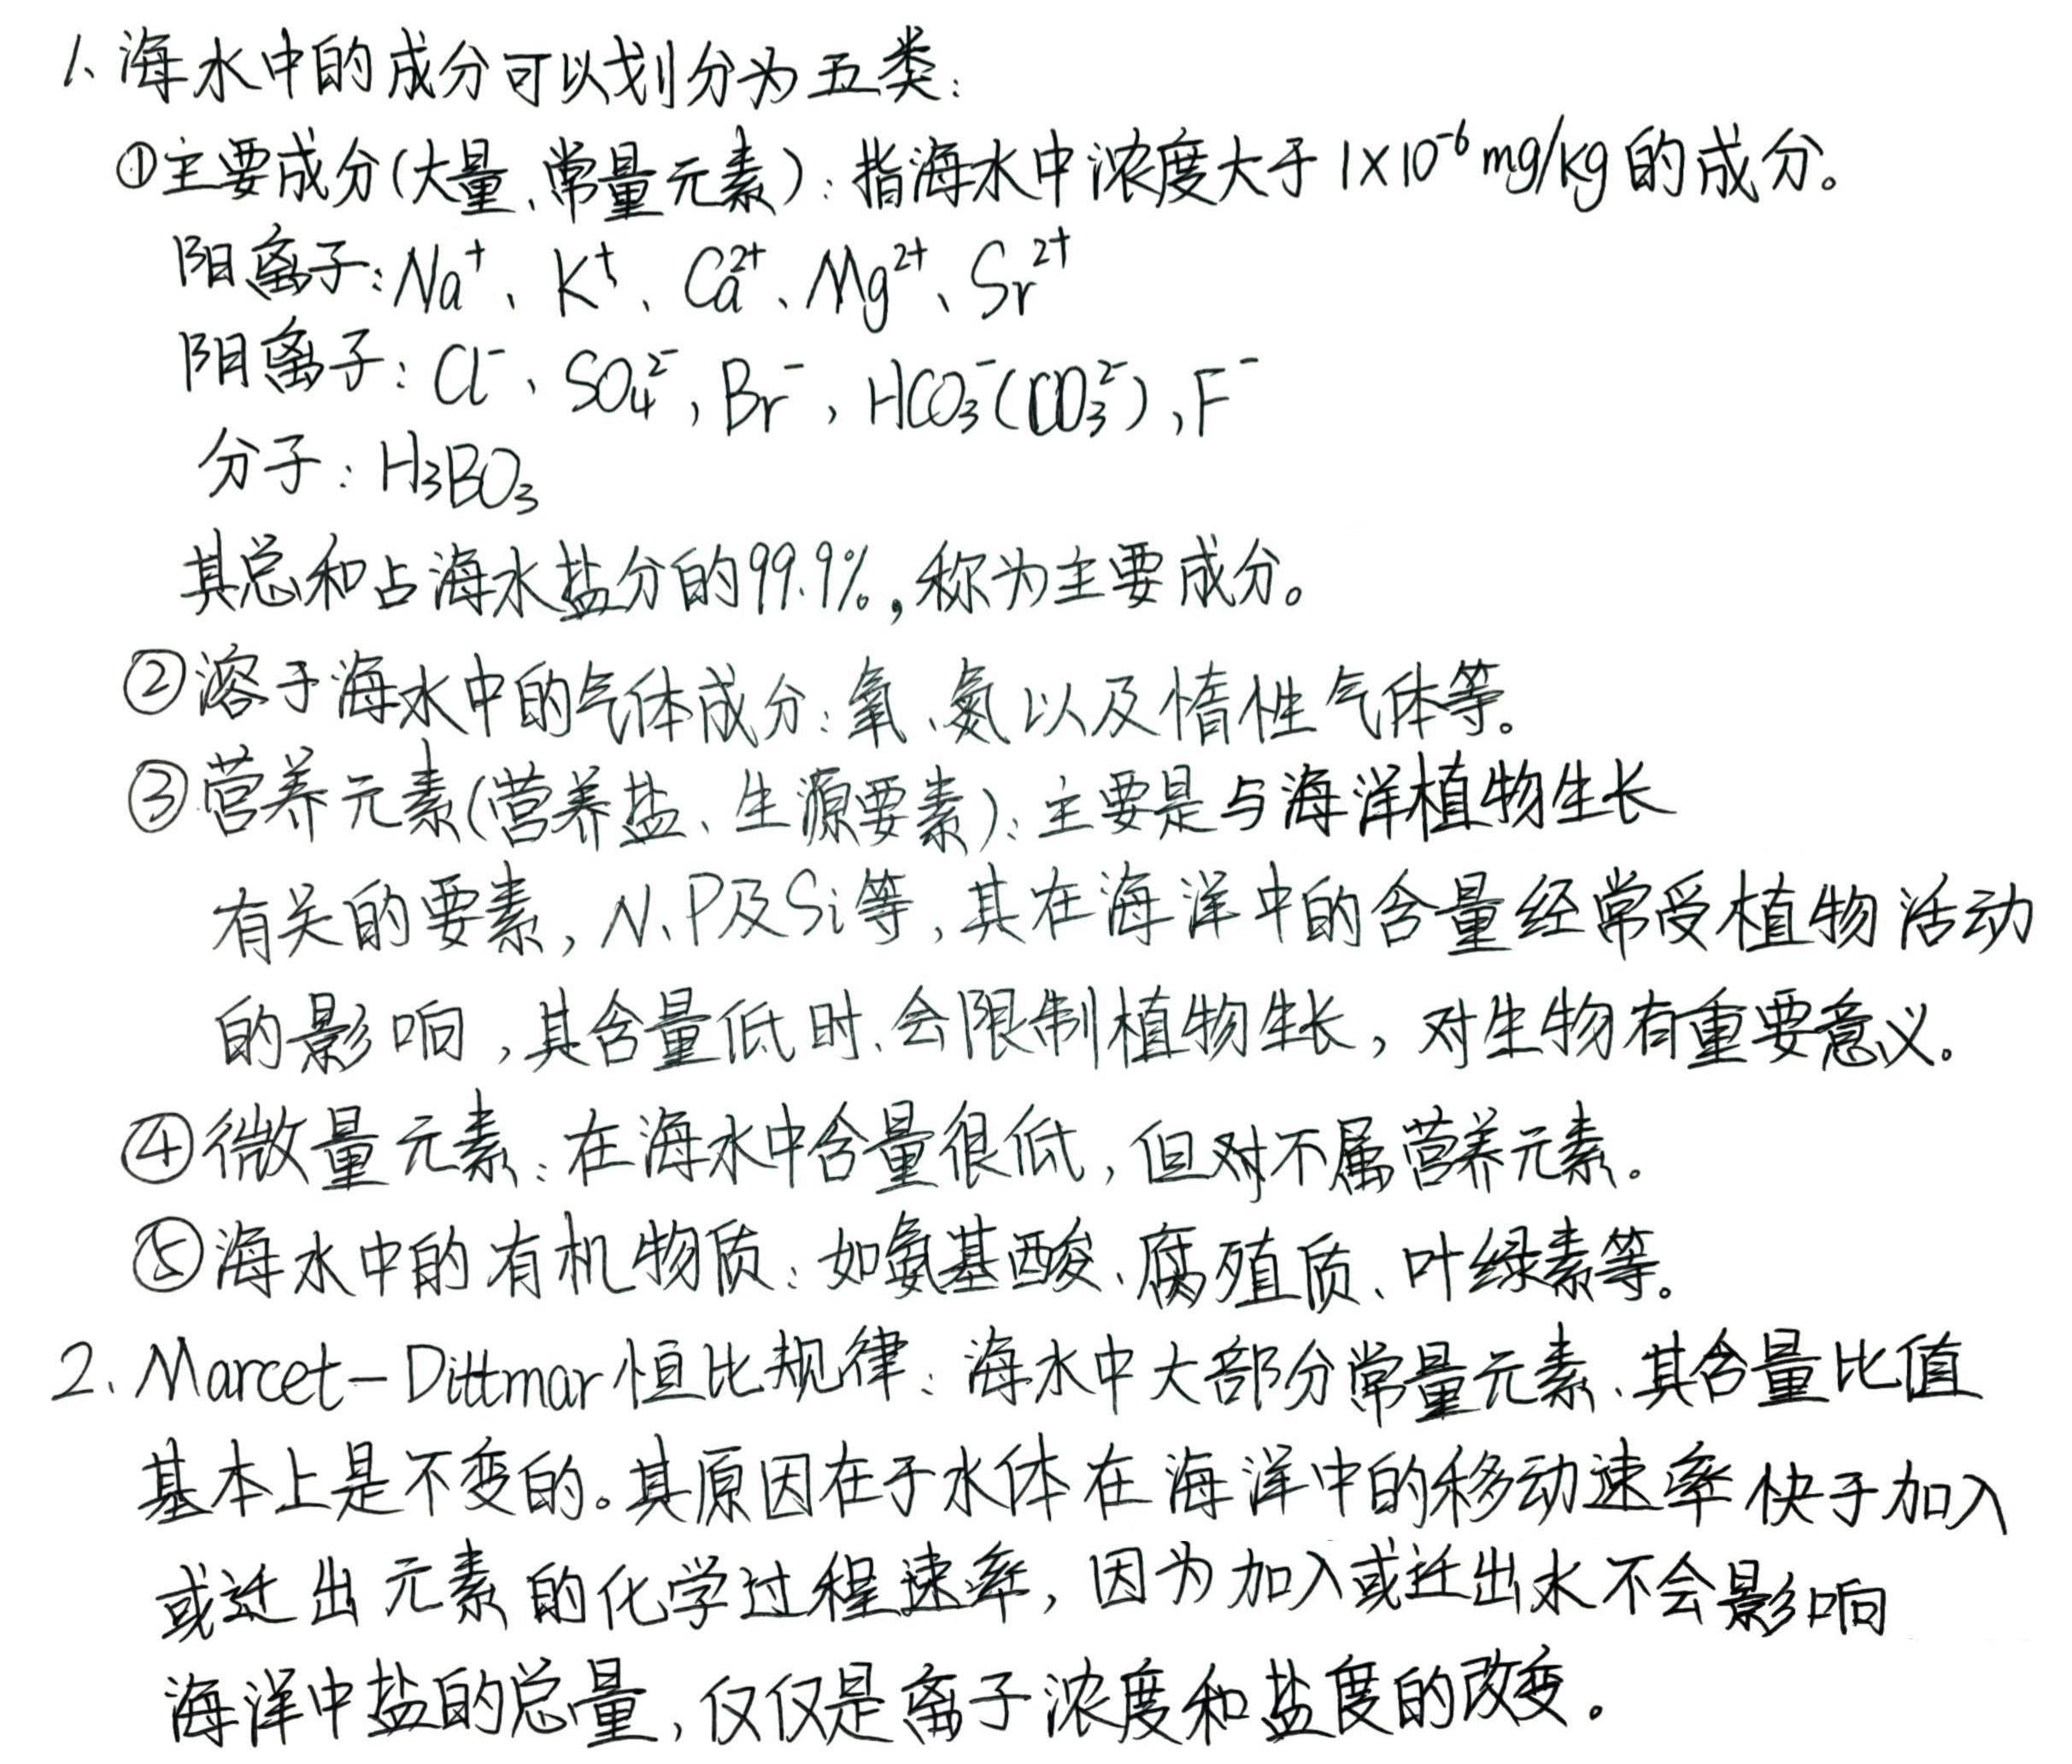 1、海水中的成分可以划分为五类:
①主要成分(大量、常量元素):指海水中浓度大于1×10⁻⁶mg/kg的成分。
阳离子:Na⁺、K⁺、Ca²⁺、Mg²⁺、Sr²⁺
阴离子:Cl⁻、SO₄²⁻,Br⁻,HCO₃⁻(CO₃²⁻),F⁻
分子:H₃BO₃
其总和占海水盐分的99.9%,称为主要成分。
②溶于海水中的气体成分:氧、氮以及惰性气体等。
③营养元素(营养盐、生源要素):主要是与海洋植物生长
有关的要素,N、P及Si等,其在海洋中的含量经常受植物活动
的影响,其含量低时、会限制植物生长,对生物有重要意义。
④微量元素:在海水中含量很低,但对不属营养元素。
⑤海水中的有机物质:如氨基酸、腐殖质、叶绿素等。
2、Marcet-Dittmar恒比规律:海水中大部分常量元素、其含量比值
基本上是不变的。其原因在于水体在海洋中的移动速率快于加入
或迁出元素的化学过程速率,因为加入或迁出水不会影响
海洋中盐的总量,仅仅是离子浓度和盐度的改变。